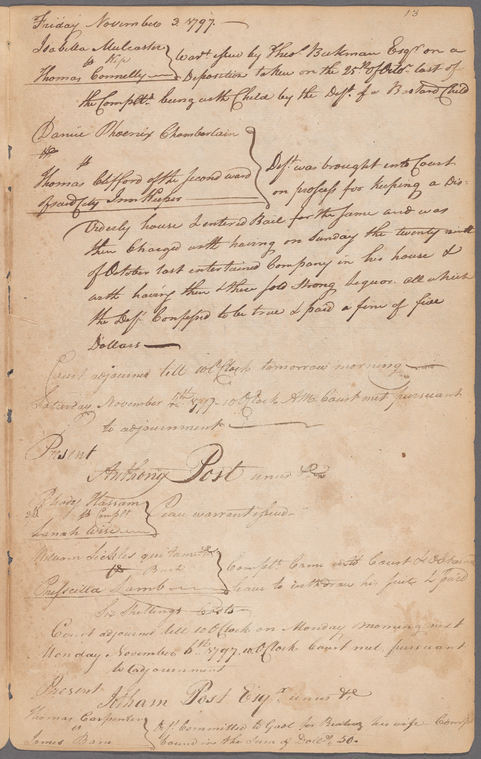 13
Friday November 3 1797
Isabella Mulcaster
vs
Thomas Connelly
Warrt issued by Theos Beekman Esqr on a
Deposition taken on the 25th of Octor last of
the Complts being with Child by the Deft of a Bastard Child
Daniel Phoenix Chamberlain
vs
Thomas Clifford of the second ward
of said City Inn Keeper
Deft was brought into Court
on process for keeping a Dis-
orderly house & entered Bail for the same and was
then Charged with having on Sunday the twenty ninth
of October last entertained Company in his house &
with having then & there sold strong liquor all which
the Deft Confessed to be true & paid a fine of five
Dollars
Court adjourned till 10 OClock tomorrow morning
Saturday November 4th 1797 10 OClock AM Court met pursuant
to adjournment
Present
Anthony Post
Hassam
Sarah Wise
warrant issued
William Sickles qui tam
vs
Priscilla Lamb
Complt Came into Court & obtained
leave to withdraw his suit & paid
Six Shillings Costs
Court adjourned till 10 OClock on Monday morning next
Monday November 6th 1797 10 OClock Court met pursuant
to adjournment
Present
Jotham Post Esqr
Thomas Carpenter
vs
James Bain
Deft Committed to Gaol for Beating his wife
bound in the Sum of Dolls 50